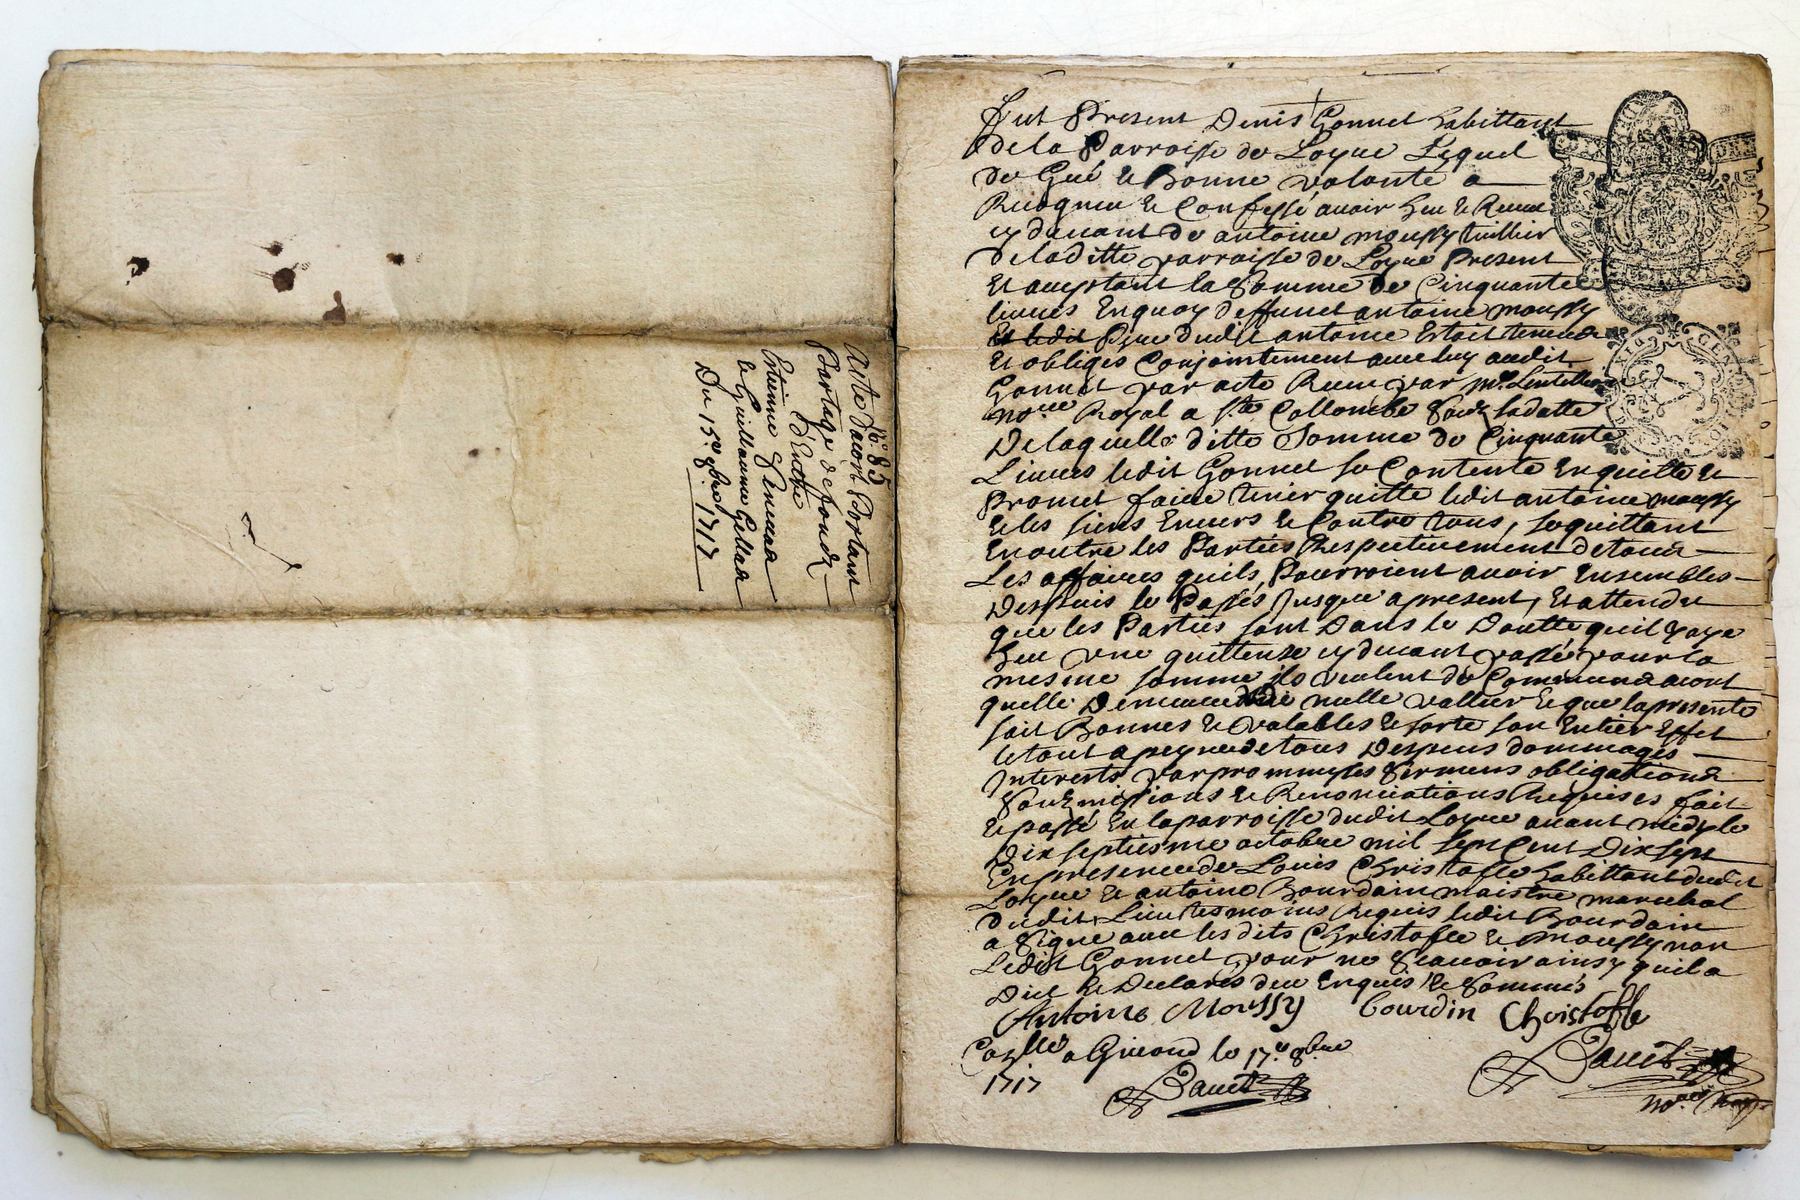 N.° 85
Acte d'acort Portant
Partage de fondz
d'Entre
Estienne
& Guillaume
Du 15.e 9bre 1717
Fut Present Denis Gonnet habittant
de la Parroisse de Loyue Lequel
de Gré & Bonne volonté a
Recognu & Confessé auoir heu & Receu
cy deuant de antoine moussy tuillier
de laditte parroisse de Loyue Present
Et aceptant la Somme de Cinquante
liures En quoy deffunct antoine moussy
Pere dudit antoine Estoit tenu
Et obligés Conjointement auec luy audit
Gonnet par acte Receu par me.
nore Royal a Ste Collombe Souz sa datte
De laquelle ditte Somme de Cinquante
Liures ledit Gonnet se Contente En quitte &
Promet faire tenir quitte ledit antoine moussy
& les siens Enuers & Contre tous, se quittant
En outre les Parties Respectiuement de touttes
Les affaires quils Pourroient auoir Ensembles
Despuis le Passés Jusque apresent, Et attendu
que les Parties sont Dans le Doutte quil y aye
heu vne quittense cy deuant passé pour la
mesme somme ils veulent de Commun acort
quelle Demeure de nulle valleur & que la presente
soit Bonnes & valables & sorte son Entier Effet
le tout a peyne de tous Despens dommages
Interests par promesses Sermens obligations
Souzmissions & Renonciations Requises fait
& passé En la parroisse dudit Loyue auant midy le
Dix septiesme octobre mil sept Cent Dix sept
En presence de Louis Christofle habittant dudit
Loyue & antoine Bourdain maistre marechal
dudit Lieu tesmoins Requis ledit Bourdain
a Signe auec les dits Christofle & moussy non
Ledit Gonnet pour ne Scauoir ainsy quil a
Dict & Declarés deu Enquis & Sommés
Antoine Moussy bourdin Christofle
Conllé a Giuord le 17.e 8bre
1717